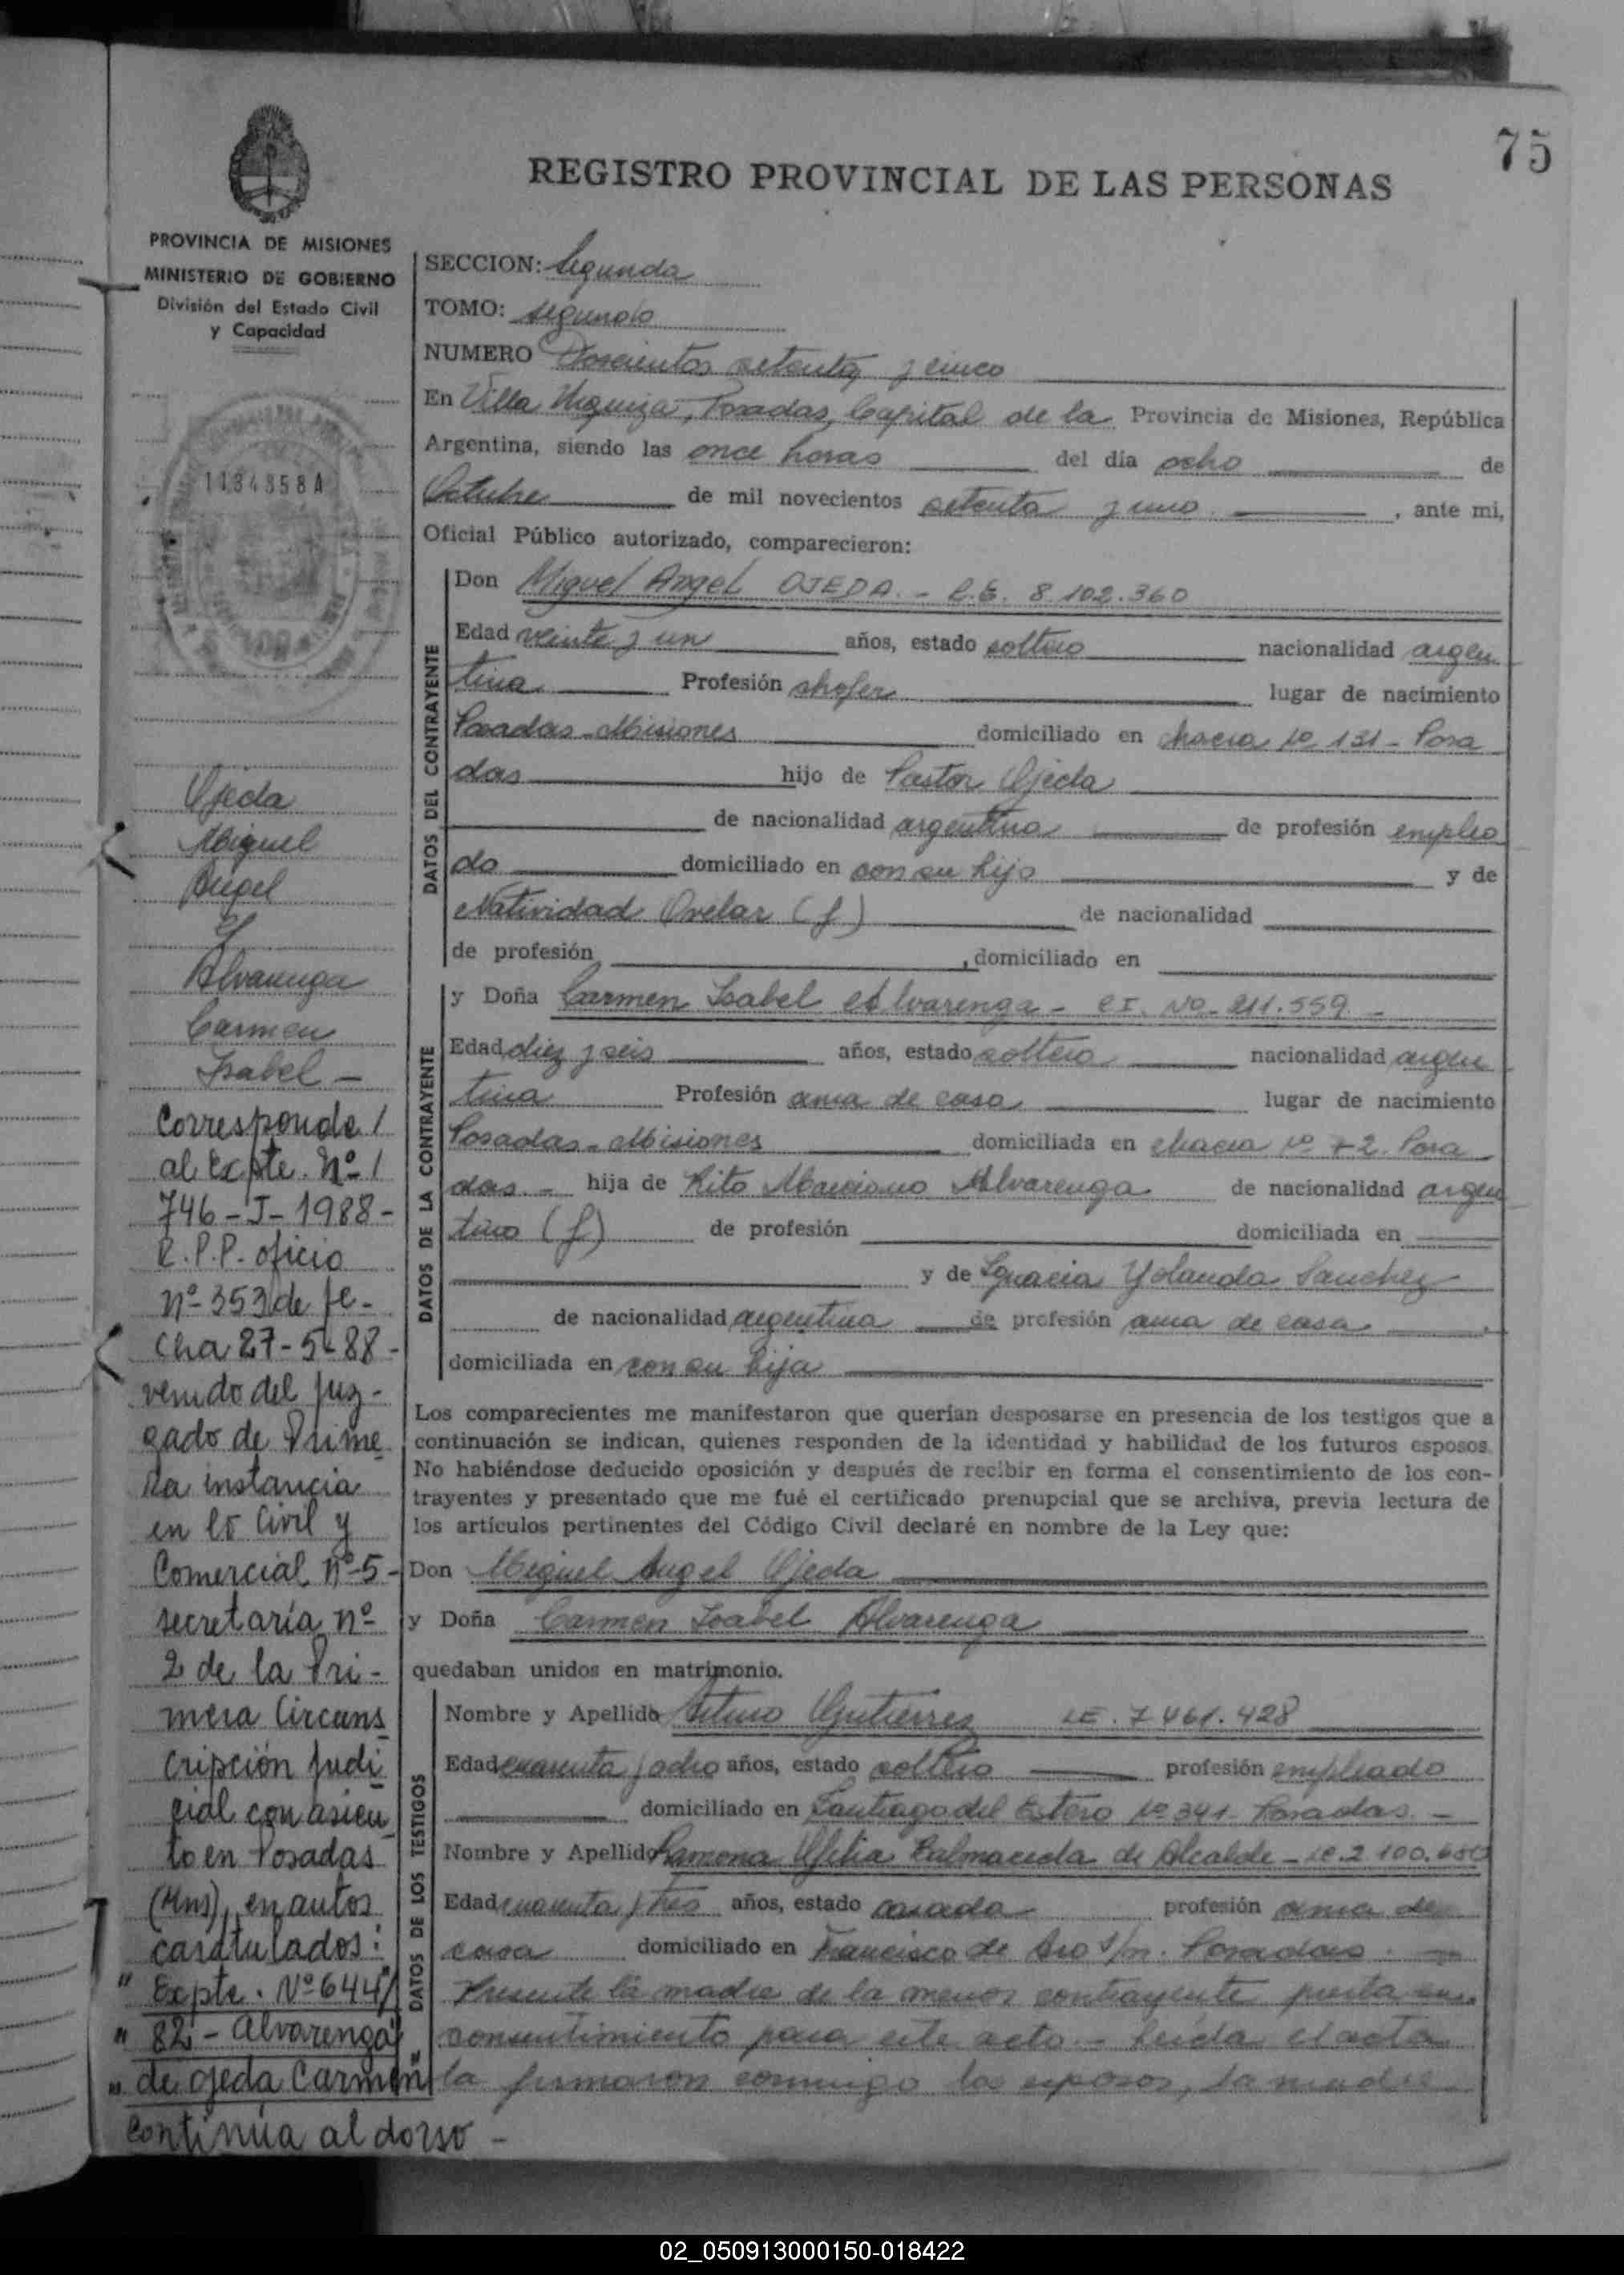 75
REGISTRO PROVINCIAL DE LAS PERSONAS
PROVINCIA DE MISIONES
MINISTERIO DE GOBIERNO
División del Estado Civil
y Capacidad
1134358A
Ojeda
Miguel
Angel
y
Alvarenga
Carmen
Isabel -
Corresponde /
al Expte. Nº /
746-J-1988-
R.P.P. oficio
nº 353 de fe-
cha 27-5-88-
venido del Juz-
gado de Prime
ra instancia
en lo Civil y
Comercial nº 5-
secretaría nº
2 de la Pri-
mera Circuns
cripción Judi
cial con asien
to en Posadas
(Mns), en autos
caratulados:
" Expte. Nº 644/
" 82 - Alvarenga
" de Ojeda Carmen "
Continúa al dorso -
SECCION: Segunda
TOMO: segundo
NUMERO Doscientos setenta y cinco
En Villa Urquiza, Posadas, Capital de la Provincia de Misiones, República
Argentina, siendo las once horas del día ocho de
Octubre de mil novecientos setenta y uno, ante mi,
Oficial Público autorizado, comparecieron:
DATOS DEL CONTRAYENTE
Don Miguel Angel OJEDA. - L.E. 8.102.360
Edad veinte y un años, estado soltero nacionalidad argen
tina Profesión chofer lugar de nacimiento
Posadas-Misiones domiciliado en chacra Nº 131 - Posa
das hijo de Pastor Ojeda
de nacionalidad argentina de profesión emplea
do domiciliado en con su hijo y de
Natividad Ovelar (f) de nacionalidad
de profesión , domiciliado en
DATOS DE LA CONTRAYENTE
y Doña Carmen Isabel Alvarenga - C.I. Nº 211.559. -
Edad diez y seis años, estado soltera nacionalidad argen
tina Profesión ama de casa lugar de nacimiento
Posadas-Misiones domiciliada en chacra Nº 72. Posa
das - hija de Rito Marciano Alvarenga de nacionalidad argen
tino (f) de profesión domiciliada en
y de Ignacia Yolanda Sanchez
de nacionalidad argentina de profesión ama de casa
domiciliada en con su hija
Los comparecientes me manifestaron que querían desposarse en presencia de los testigos que a
continuación se indican, quienes responden de la identidad y habilidad de los futuros esposos.
No habiéndose deducido oposición y después de recibir en forma el consentimiento de los con-
trayentes y presentado que me fué el certificado prenupcial que se archiva, previa lectura de
los artículos pertinentes del Código Civil declaré en nombre de la Ley que:
Don Miguel Angel Ojeda
y Doña Carmen Isabel Alvarenga
quedaban unidos en matrimonio.
DATOS DE LOS TESTIGOS
Nombre y Apellido Arturo Gutierrez LE. 7.461.428
Edad cuarenta y ocho años, estado soltero profesión empleado
domiciliado en Santiago del Estero Nº 341 - Posadas. -
Nombre y Apellido Ramona Ofelia Balmaceda de Alcalde - LC. 2.100.650
Edad cuarenta y tres años, estado casada profesión ama de
casa domiciliado en Francisco de Aro s/n. Posadas. -
Presente la madre de la menor contrayente presta su
consentimiento para este acto. - Leída el acta
la firmaron conmigo los esposos, la madre
02_050913000150-018422